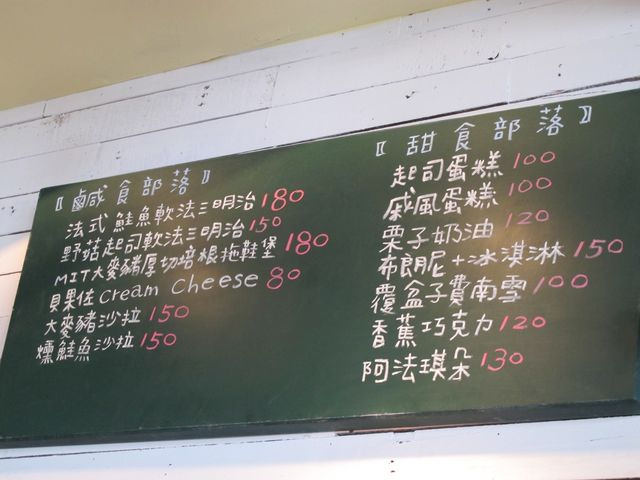 〖鹹食部落〗
法式鮭魚軟法三明治180
野菇起司軟法三明治150
MIT大麥豬厚切培根拖鞋堡180
貝果佐Cream Cheese 80
大麥豬沙拉150
燻鮭魚沙拉150
〖甜食部落〗
起司蛋糕100
戚風蛋糕100
栗子奶油120
布朗尼+冰淇淋150
覆盆子費南雪100
香蕉巧克力120
阿法琪朵130